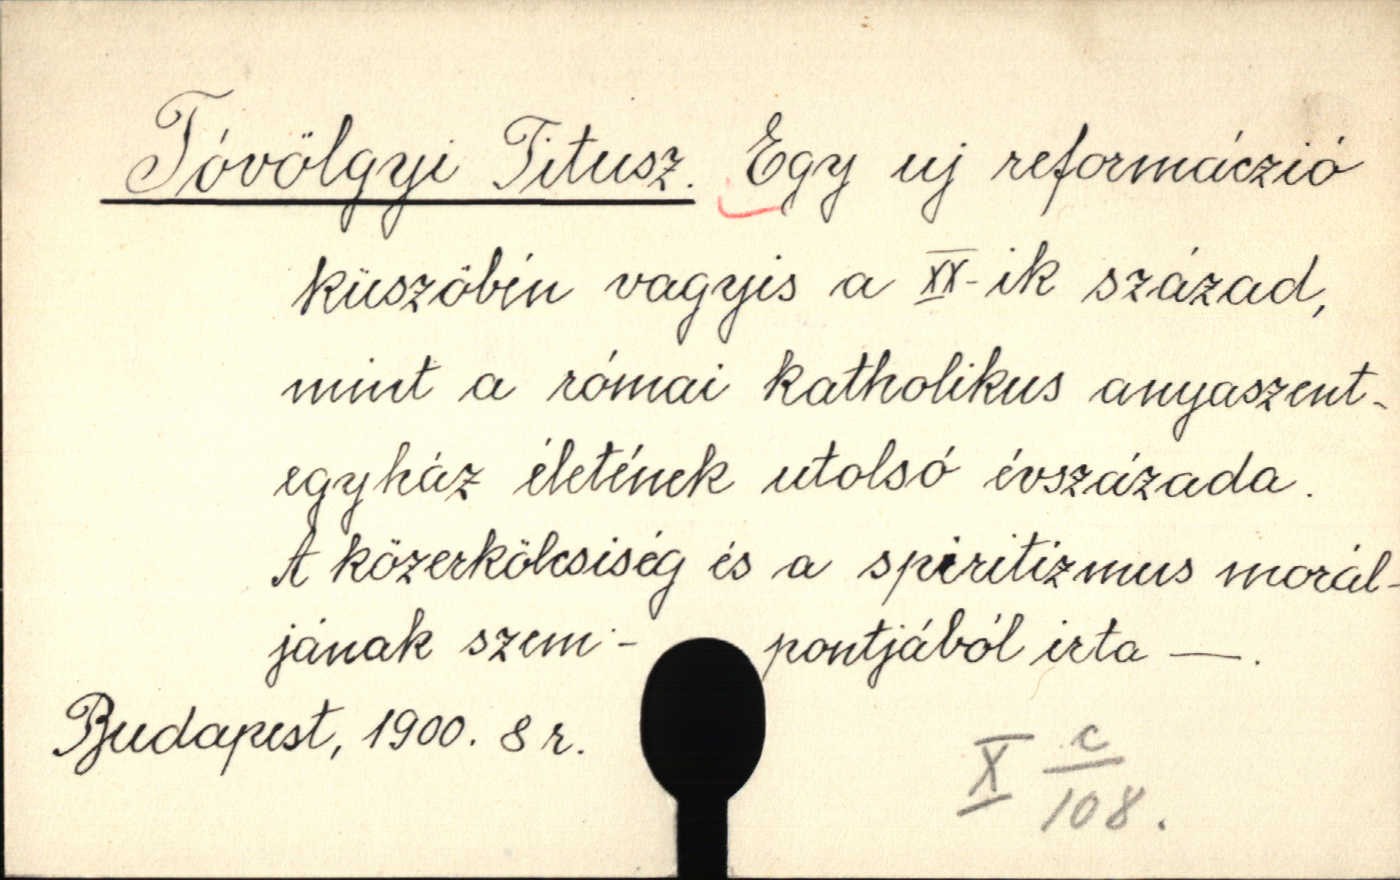 Tóvölgyi Titusz. Egy uj reformáczió
küszöbén vagyis a XX-ik század,
mint a római katholikus anyaszent-
egyház életének utolsó évszázada.
A közerkölcsiség és a spiritizmus morál-
jának szem- pontjából irta —.
Budapest, 1900. 8 r.
X c/108.